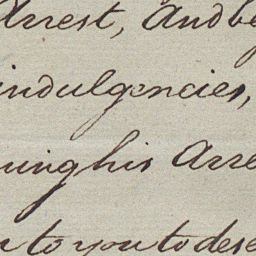 Arrest, And be
indulgencies,
uing his Arre
to you to dese